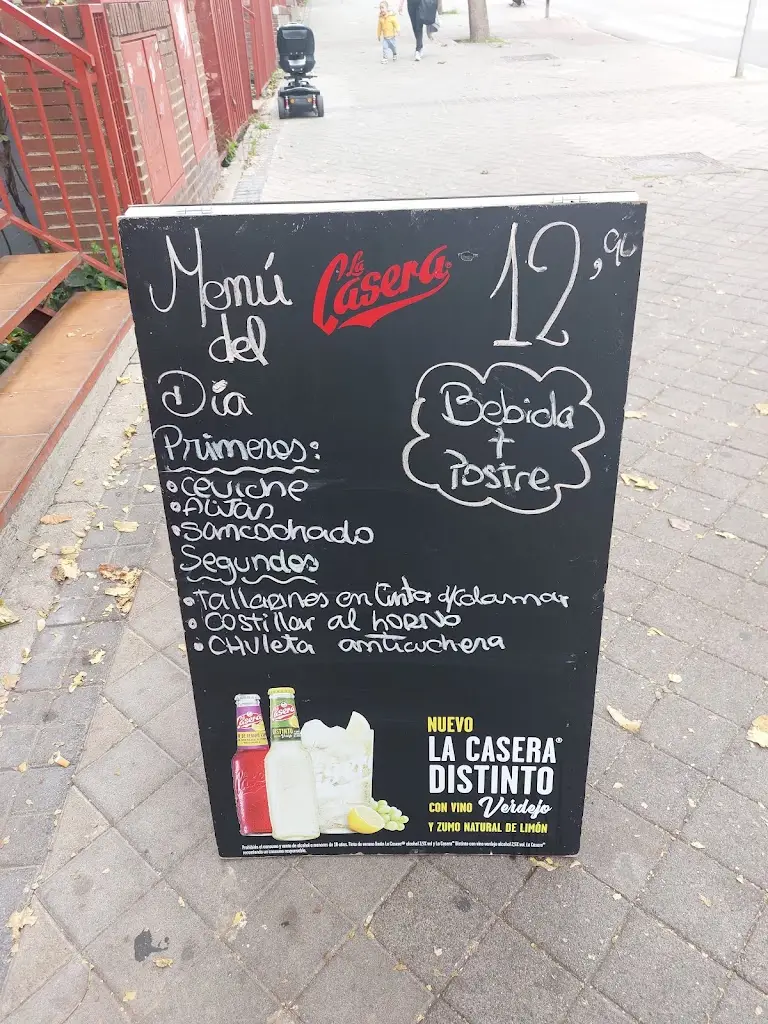 Menú
del
Día
La
Casera
12,90
Bebida
+
Postre
Primeros:
• Ceviche
• Alitas
• Sancochado
Segundos
• Tallarines en tinta d/calamar
• Costillar al horno
• Chuleta anticuchera
NUEVO
LA CASERA®
DISTINTO
CON VINO Verdejo
Y ZUMO NATURAL DE LIMÓN